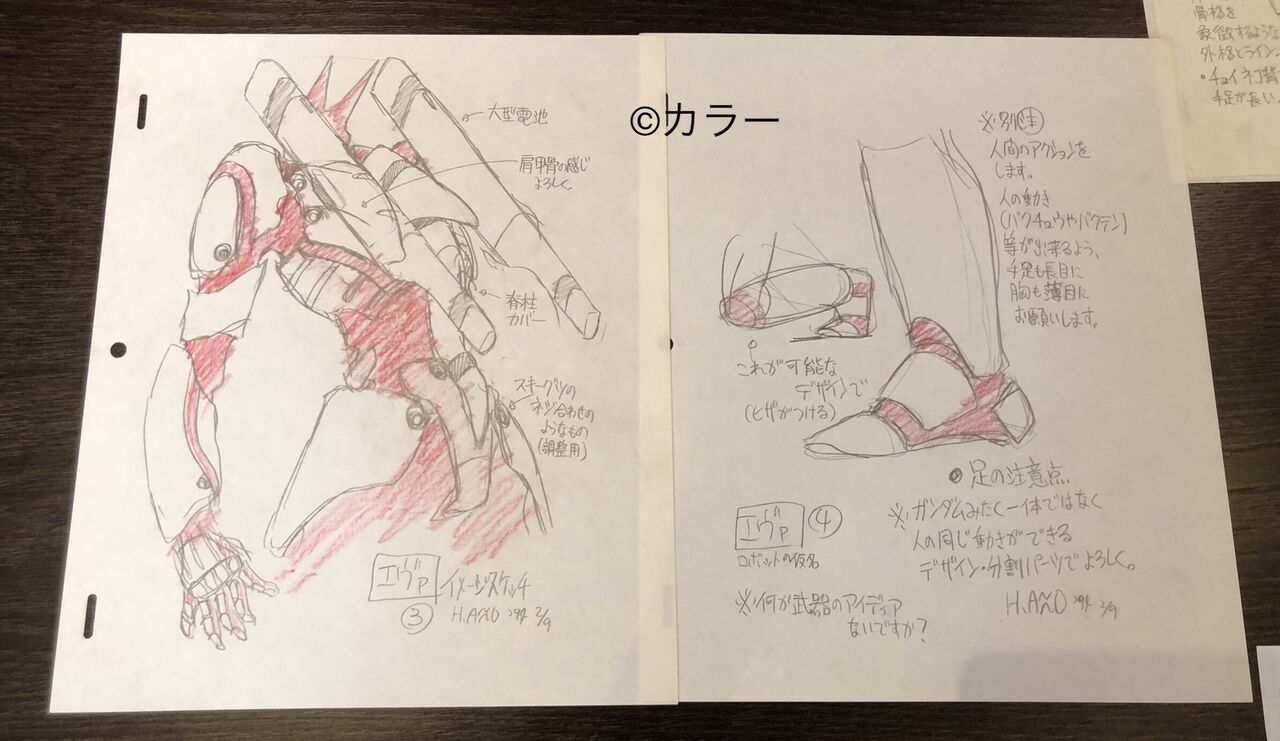 ©カラー
大型電池
肩甲骨の感じ
よろしく。
脊柱
カバー
スキーグツの
ネジ合わせの
ようなもの
(調整用)
エヴァ
イメージスケッチ
③
H.ANO '94 2/9
人間のアクションを
します。
人の動き
(バクチュウやバクテン)
等が出来るよう、
手足も長目に
胸も薄目に
お願いします。
これが可能な
デザインで
(ヒザがつける)
足の注意点
※ガンダムみたく一体ではなく
人の同じ動きができる
デザイン・分割パーツでよろしく。
H.ANO '94 2/9
エヴァ
④
ロボットの仮名
※何か武器のアイディア
ないですか?
骨格を
象徴するような
外格とライン。
・チョイネコ背
手足が長い